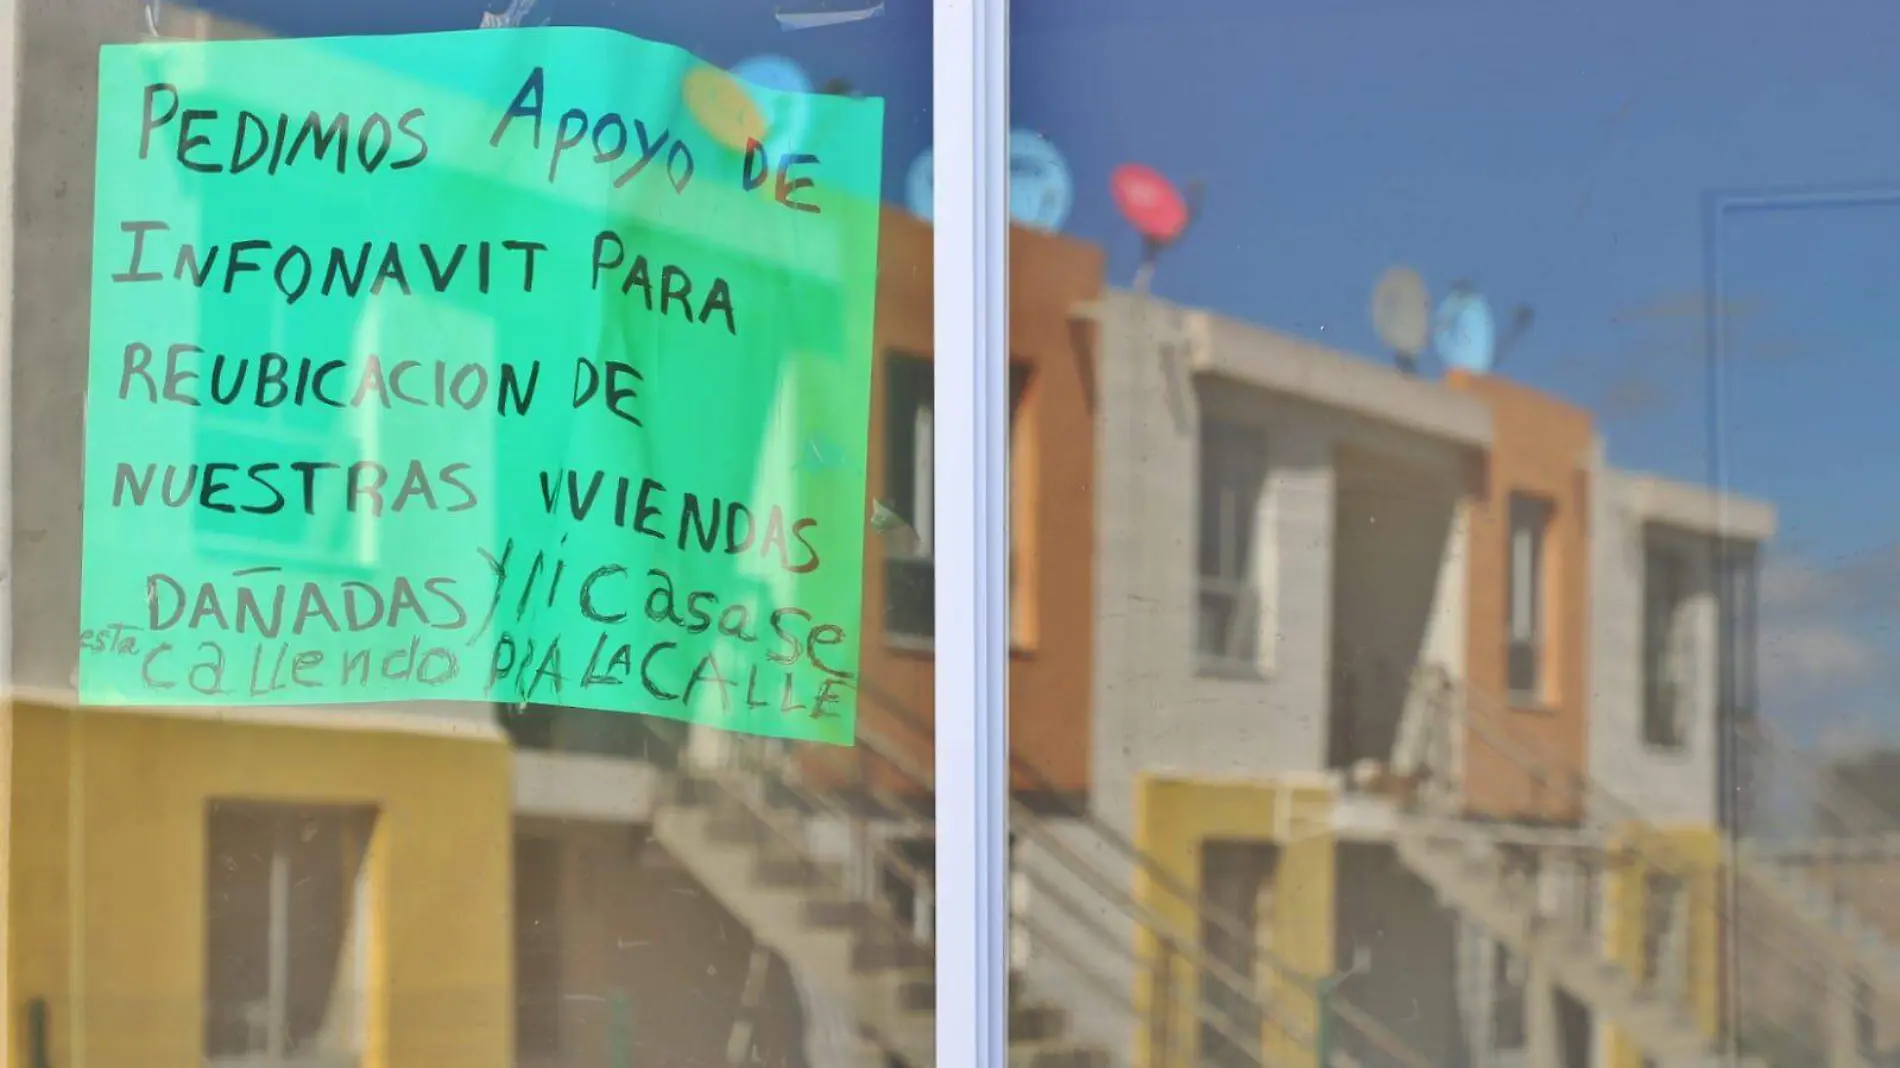 PEDIMOS APOYO DE
INFONAVIT PARA
REUBICACION DE
NUESTRAS VIVIENDAS
DAÑADAS Y casa se
esta callendo PRA LA CALLE